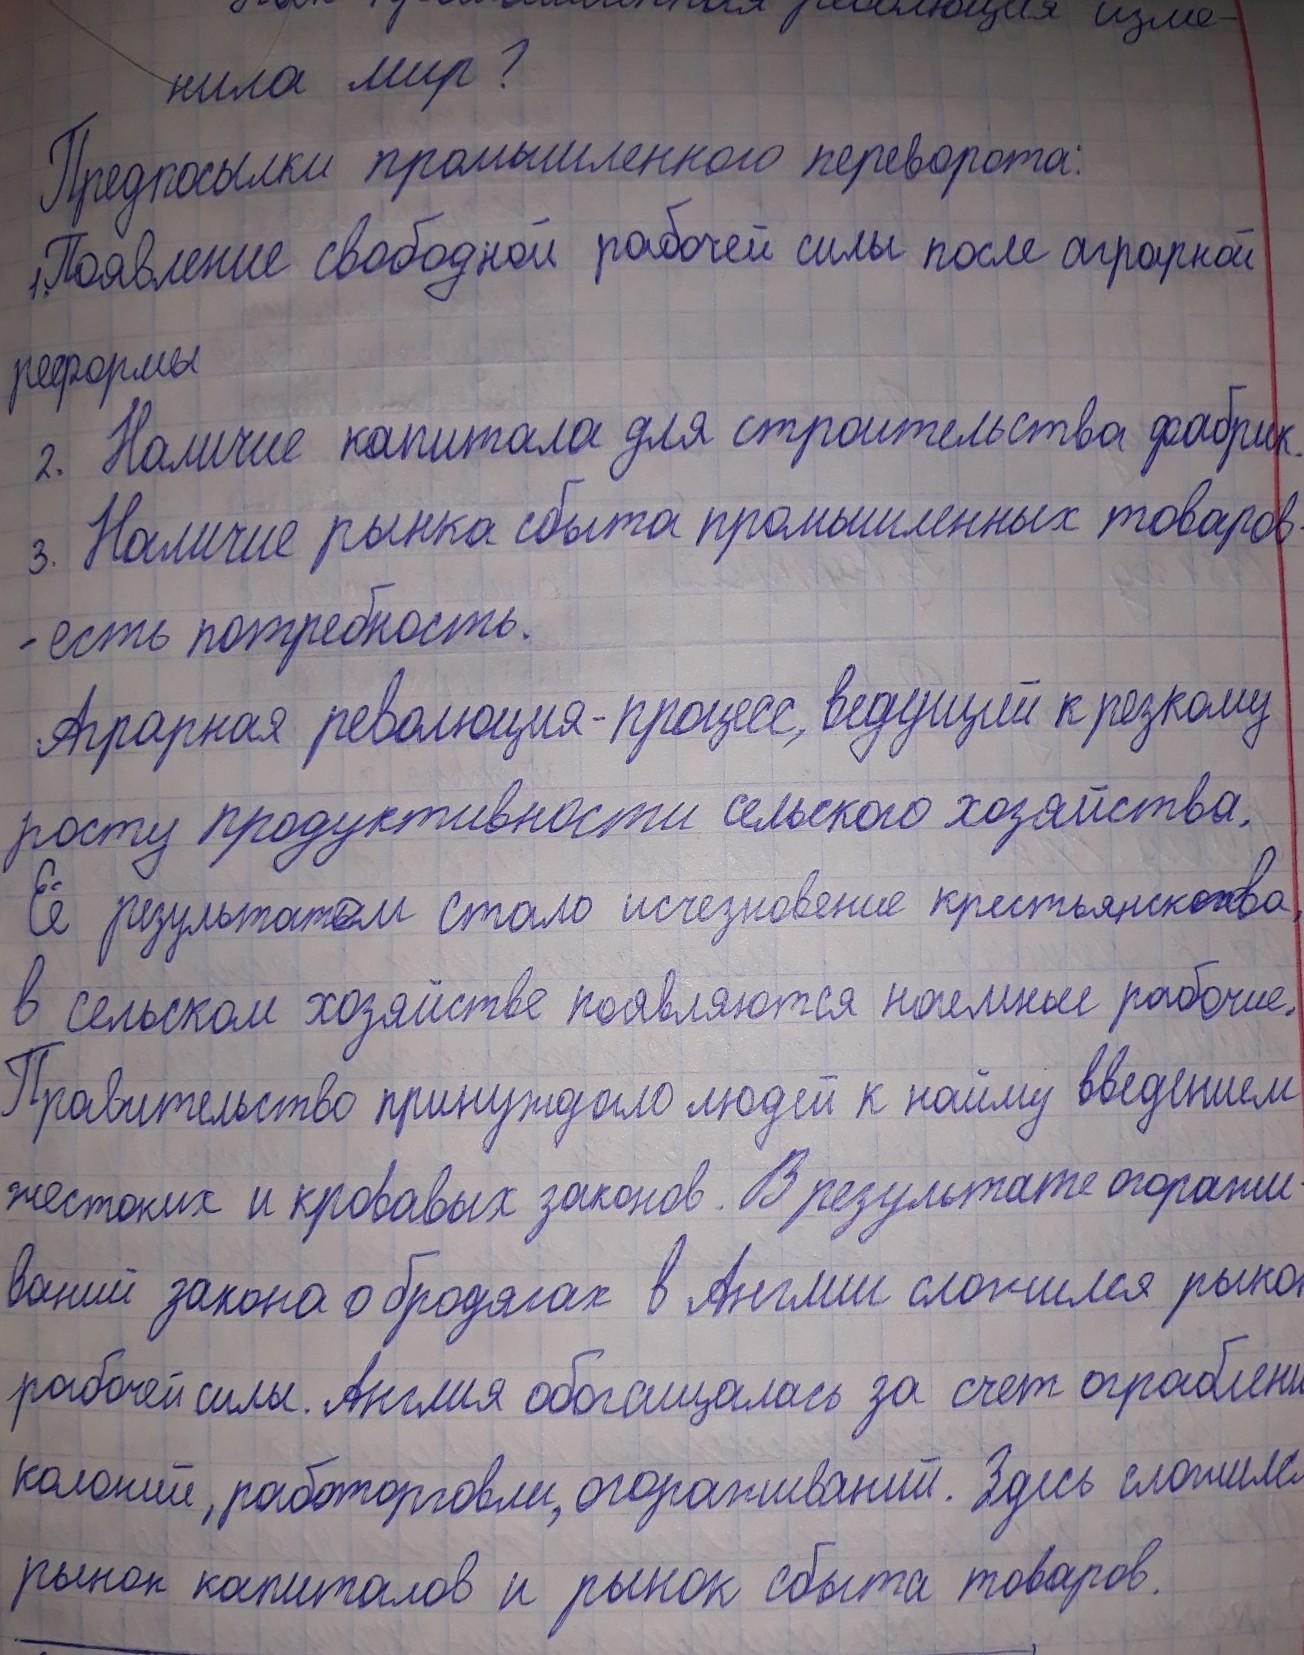 Как промышленная революция изме-
нила мир?
Предпосылки промышленного переворота:
1. Появление свободной рабочей силы после аграрной
реформы
2. Наличие капитала для строительства фабрик.
3. Наличие рынка сбыта промышленных товаров-
- есть потребность.
Аграрная революция - процесс, ведущий к резкому
росту продуктивности сельского хозяйства.
Её результатом стало исчезновение крестьянства,
в сельском хозяйстве появляются наемные рабочие.
Правительство принуждало людей к найму введением
жестоких и кровавых законов. В результате огоражи-
ваний закона о бродягах в Англии сложился рынок
рабочей силы. Англия обогащалась за счет ограблени
колоний, работорговли, огораживаний. Здесь сложилс
рынок капиталов и рынок сбыта товаров.